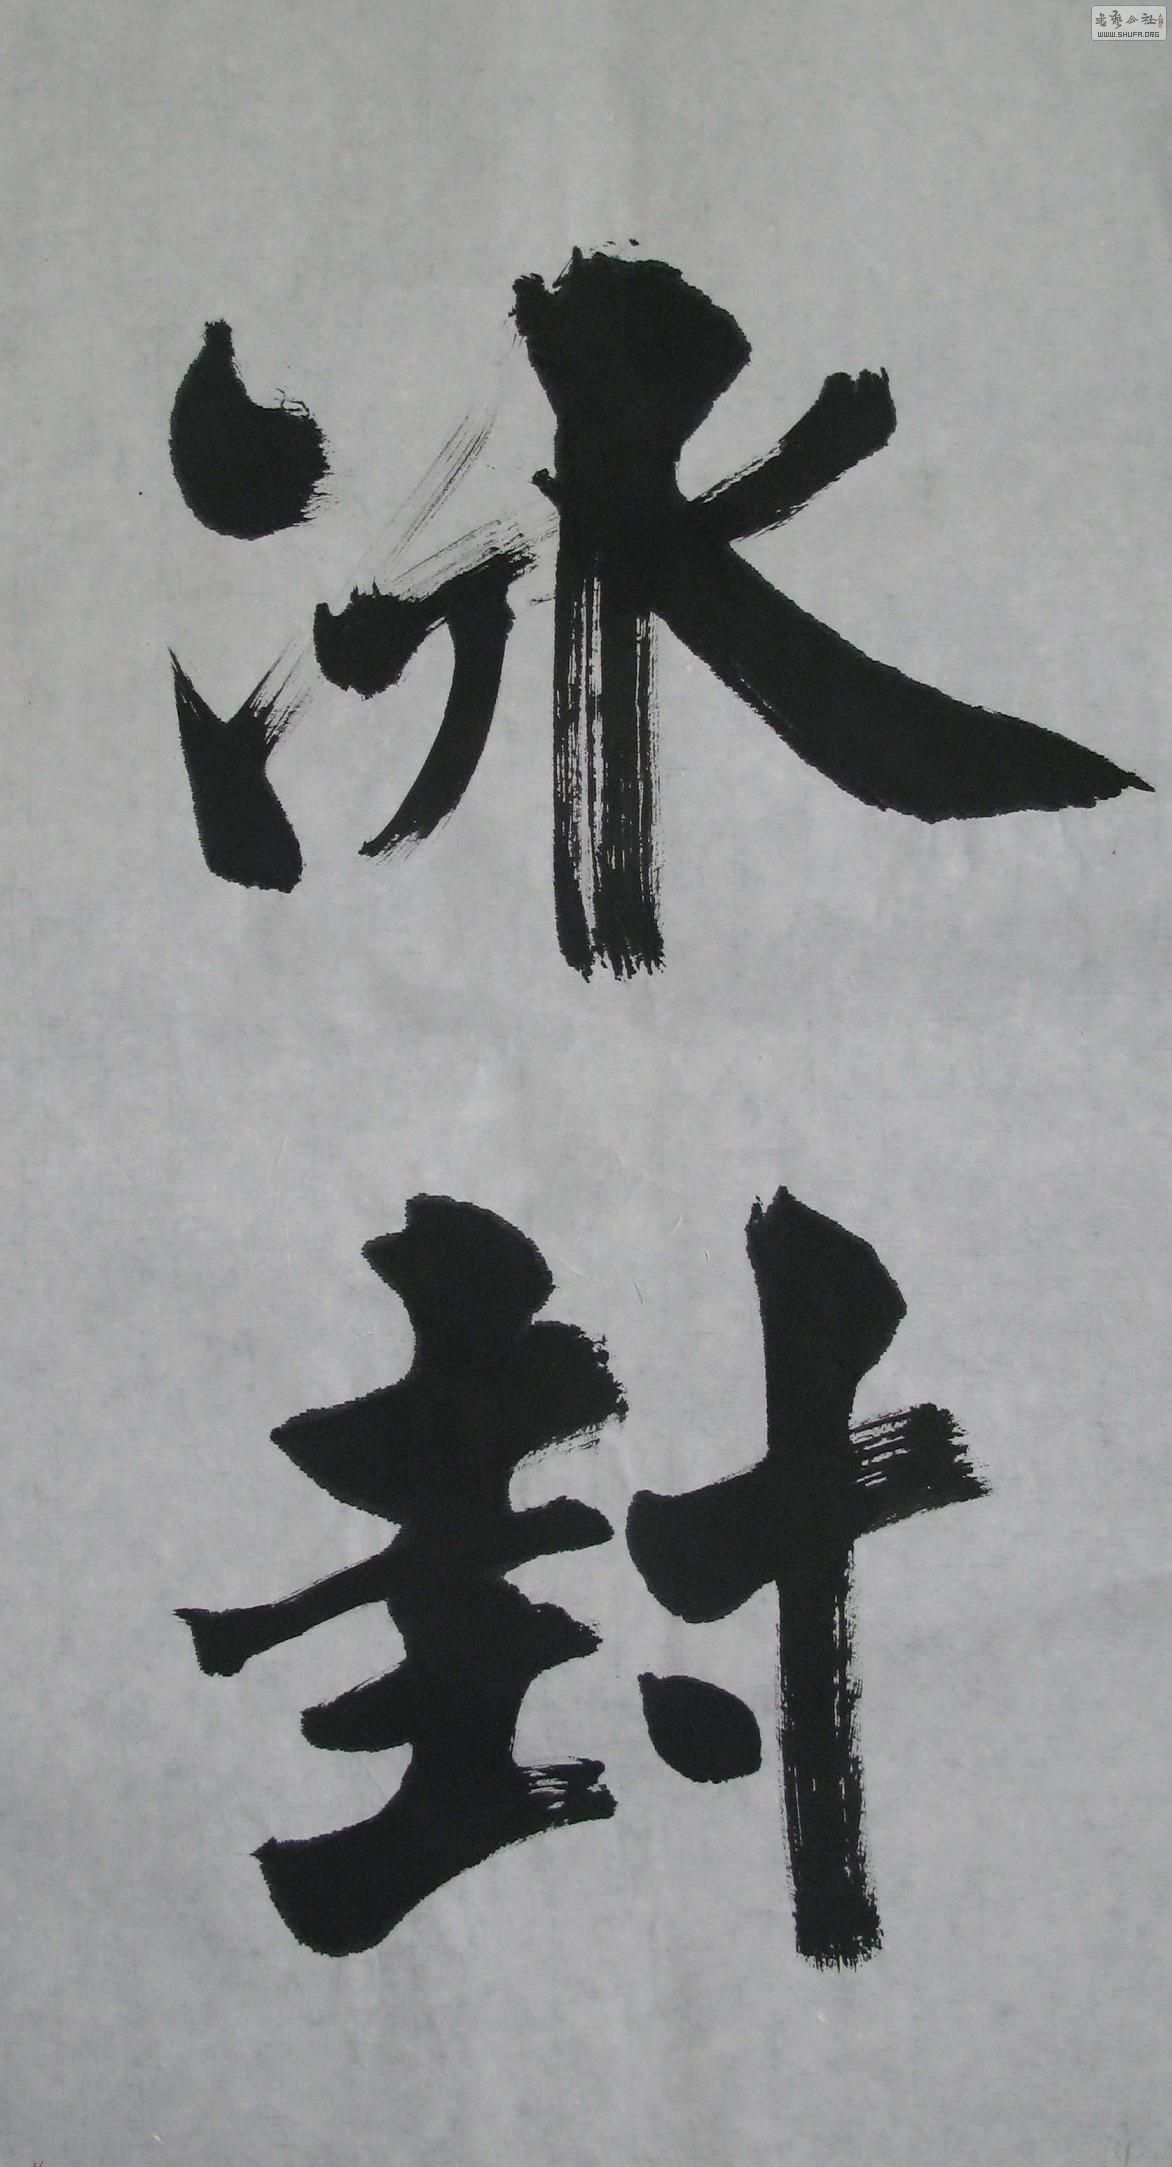 冰封
書藝公社
WWW.SHUFA.ORG